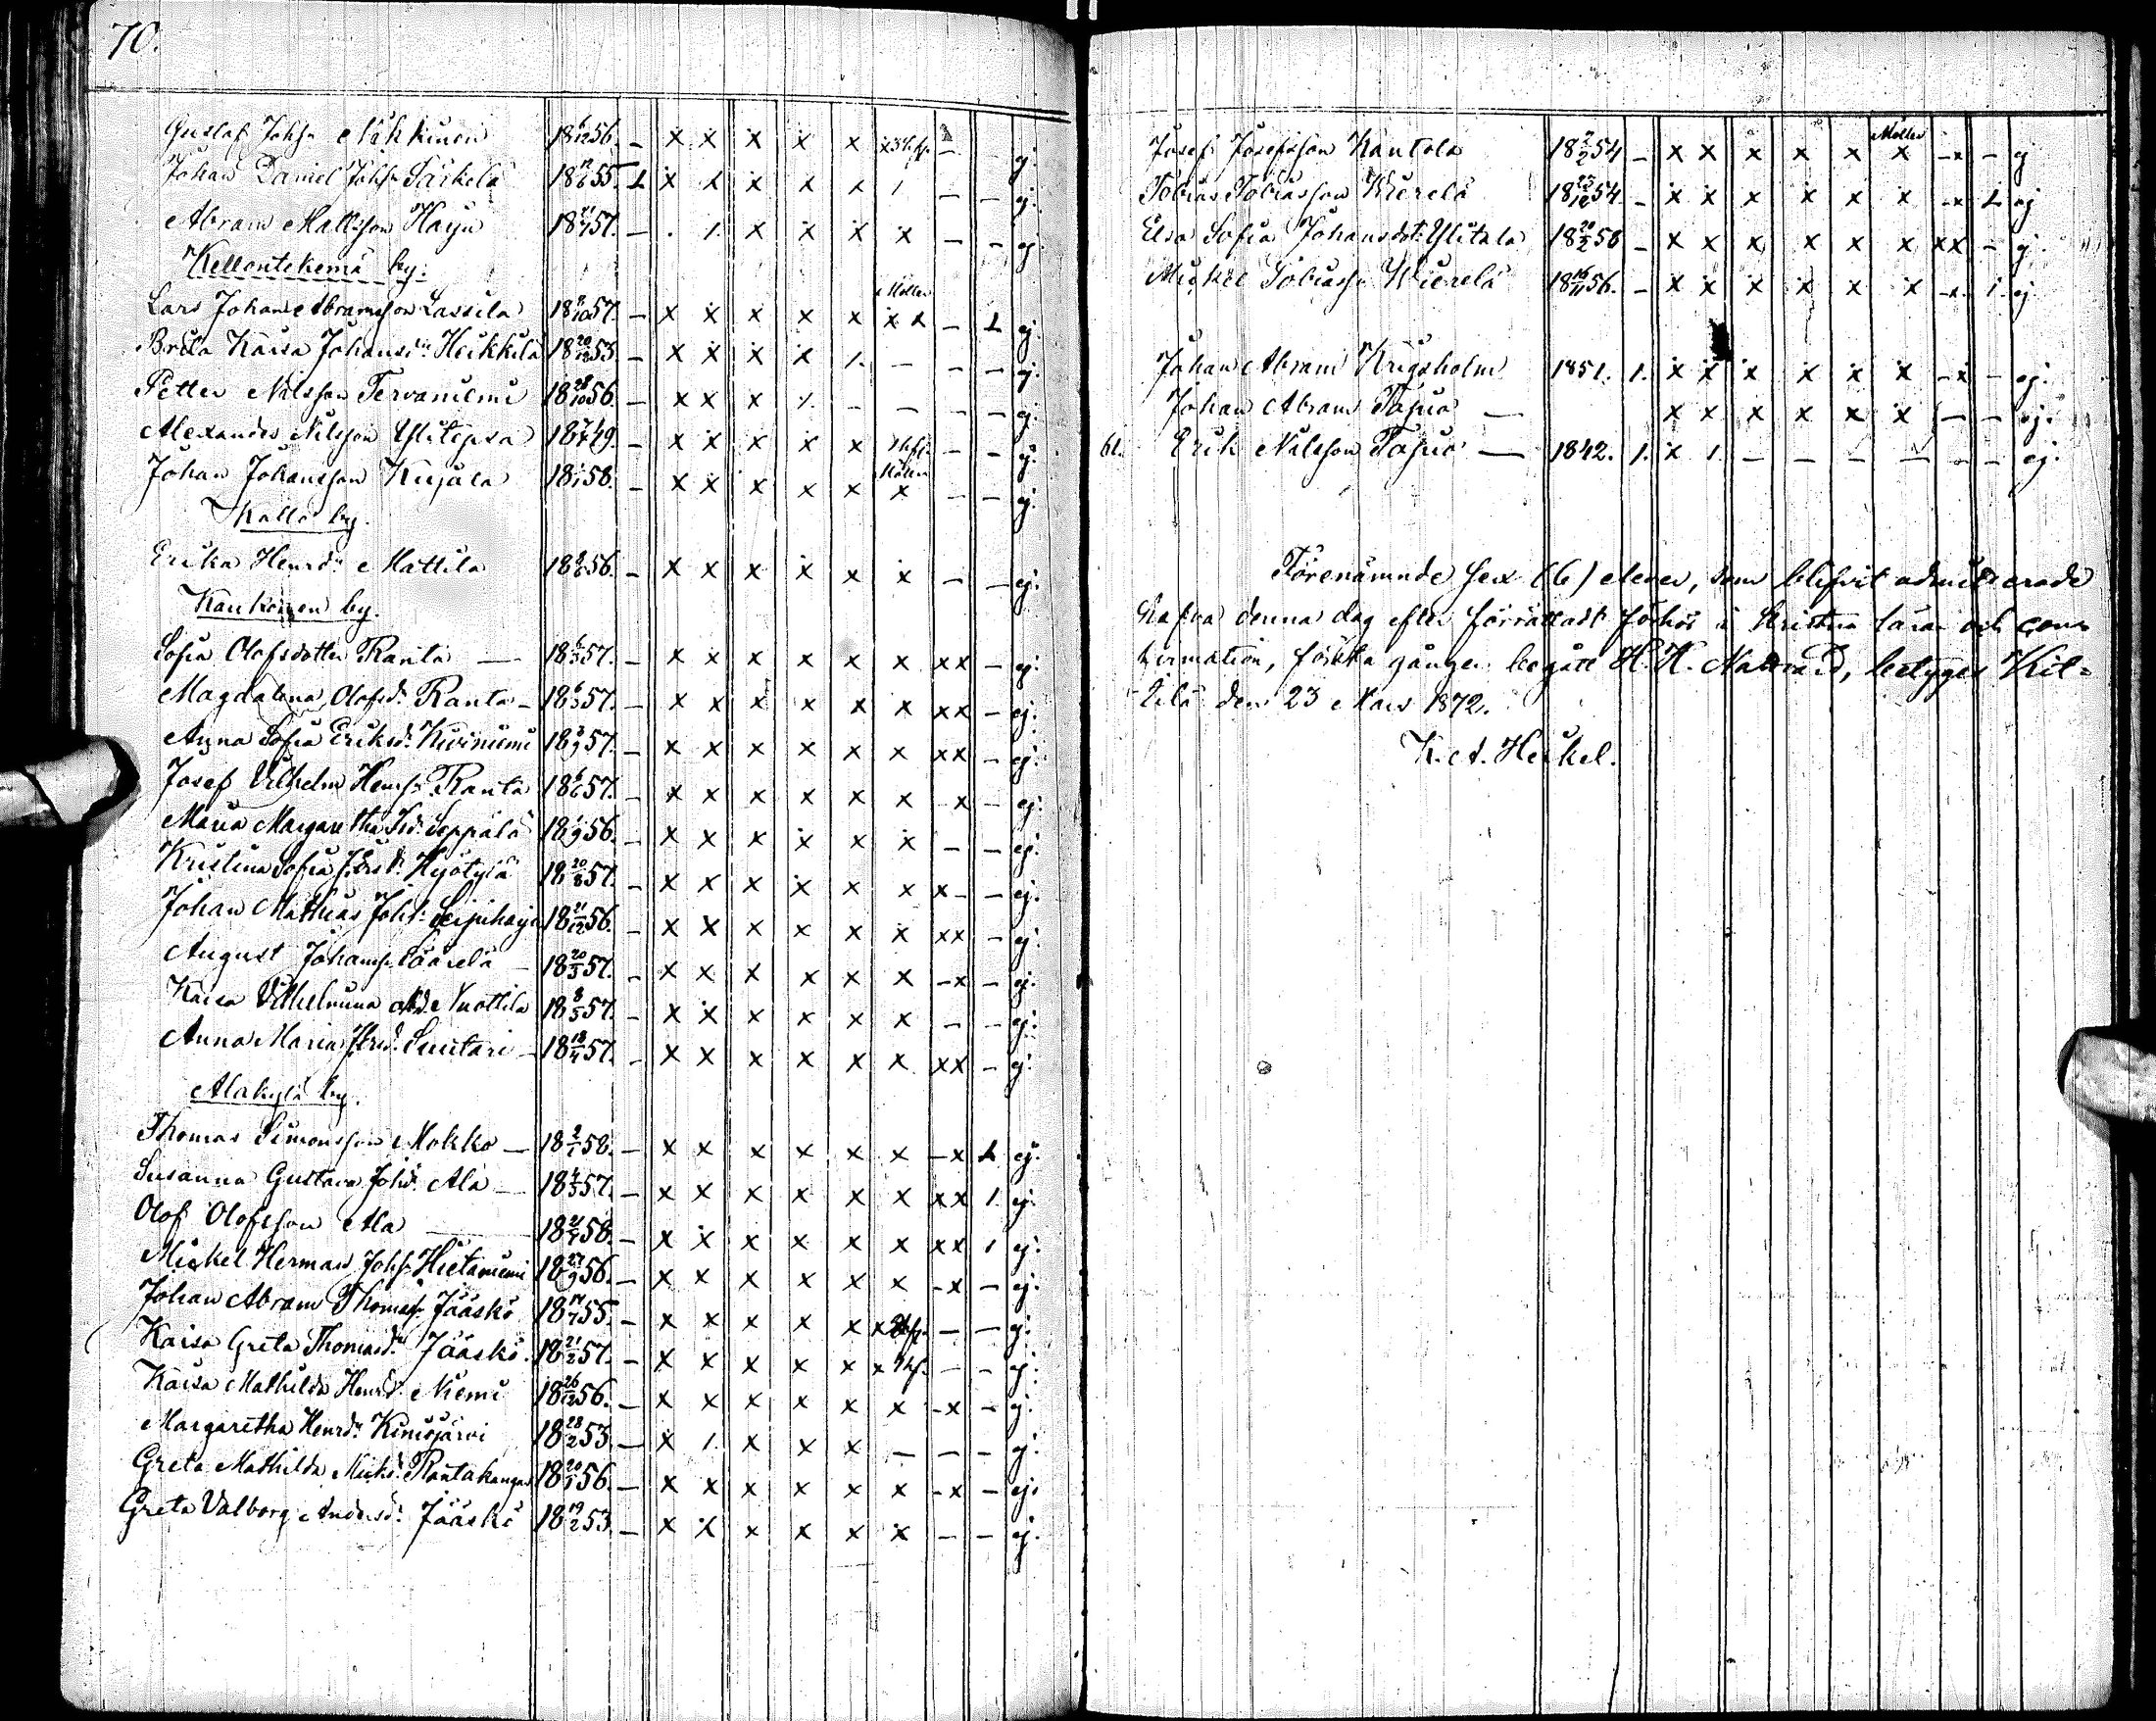 70.
Gustaf Johss Näkkinen 18 6/12 56. – x x x x x x – – ej.
Johan Daniel Johss Särkelä 18 12/6 55. 1 x x x x x 1 – – ej.
Abram Mattsson Harju 18 21/7 57. – . 1. x x x x – – ej
Kellontekemä by.
Lars Johan Abramsson Lassila 18 /10 57. – x x x x x Möller x x – 1 ej.
Brita Kaisa Johansdr Heikkilä 18 20/12 55. – x x x x 1. – – – ej.
Petter Nilsson Tervaniemi 18 28/10 56. – x x x 1. – – – – ej.
Alexander Nilsson Ylitepsa 18 49. – x x x x x – – ej.
Johan Johansson Kujala 18 58. – x x x x x Möller x – – ej.
Kallo by.
Erika Henrdr Mattila 18 56. – x x x x x x – – ej.
Kaukonen by.
Sofia Olofsdotter Ranta – 18 6/3 57. – x x x x x x xx – ej.
Magdalena Olofsd. Ranta – 18 6/3 57. – x x x x x x xx – ej.
Anna Sofia Eriksd. Kiviniemi 18 /9 57. – x x x x x x xx – ej.
Josef Vilhelm Henss. Ranta 18 57. – x x x x x x x – ej.
Maria Margaretha Isd. Seppälä 18 1/9 56. – x x x x x x – – ej.
Kristina Sofia Hjötylä 18 20/8 57. – x x x x x x x– – ej.
Johan Mathias Johs. Seipiharju 18 21/12 56. – x x x x x x xx – ej.
August Johanss. Säärelä – 18 20/5 57. – x x x x x x –x – ej.
Kaisa Vilhelmina Nuottila 18 8/5 57. – x x x x x x – – ej.
Anna Maria Suutari – 18 18/4 57. – x x x x x x xx – ej.
Alakylä by.
Thomas Simonsson Mokko – 18 2/1 58. – x x x x x x –x 1 ej.
Susanna Gustava Johd. Ala – 18 4/3 57. – x x x x x x xx 1. ej.
Olof Olofsson Ala – 18 58. – x x x x x x xx 1 ej.
Mickel Herman Johss. Hietaniemi 18 27/9 56. – x x x x x x –x – ej.
Johan Abram Thomass. Jääskö 18 17/7 55. – x x x x x x – – ej.
Kaisa Greta Thomasd. Jääskö. 18 21/2 57. – x x x x x x – – ej.
Kaisa Mathilda Henrd. Niemi 18 26/12 56. – x x x x x x –x – ej.
Margaretha Henrd. Kinisjärvi 18 28/2 53. – x 1. x x x – – – ej.
Greta Mathilda Mickd. Rantakangas 18 20/1 56. – x x x x x x –x – ej.
Greta Valborg Andersd. Jääskö 18 19/2 53. – x x x x x x – – ej.
Josef Josefsson Kantola 18 2/2 54 – x x x x x Möller x –x – ej
Tobias Tobiasson Wierelä 18 25/12 54. – x x x x x x –x 1 ej
Elsa Sofia Johansdr. Ylitalo 18 20/5 58 – x x x x x x xx – ej.
Mickel Tobiass. Wierelä 18 16/11 56. – x x x x x x –x 1. ej.
Johan Abram Krigsholm 1851. 1. x x x x x x –x – ej.
Johan Abram Tapio – x x x x x x – – ej.
61. Erik Nilsson Tapio – 1842. 1. x 1. – – – – – – ej.
Förenämnde sex (6) elever, som blifvit admitterade
hafva denna dag efter förrättadt förhör i kristna läran och con-
firmation, första gången begått H. H. Nattvard, betygas Kit-
tilä den 23 Mars 1872.
K. A. Heikel.